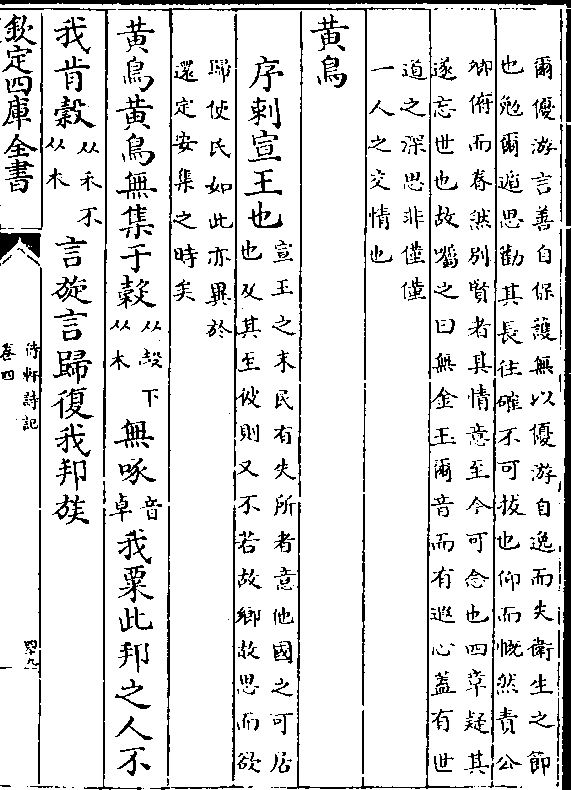 爾優游言善自保護無以優游自逸而失衛生之節
也勉爾遁思勸其長往確不可拔也仰而慨然責公
卿俯而眷然別賢者其情意至今可念也四章疑其
遂忘世也故囑之曰無金玉爾音而有遐心蓋有世
道之深思非僅僅
一人之交情也
黄鳥
序刺宣王也宣王之末民有失所者意他國之可居
也及其至彼則又不若故鄉故思而欲
歸使民如此亦異於
還定安集之時矣
黄鳥黄鳥無集于榖从㱿下从木無啄音卓我粟此邦之人不
我肯穀从禾不从木言旋言歸復我邦族
欽定四庫全書
待軒詩記
卷四